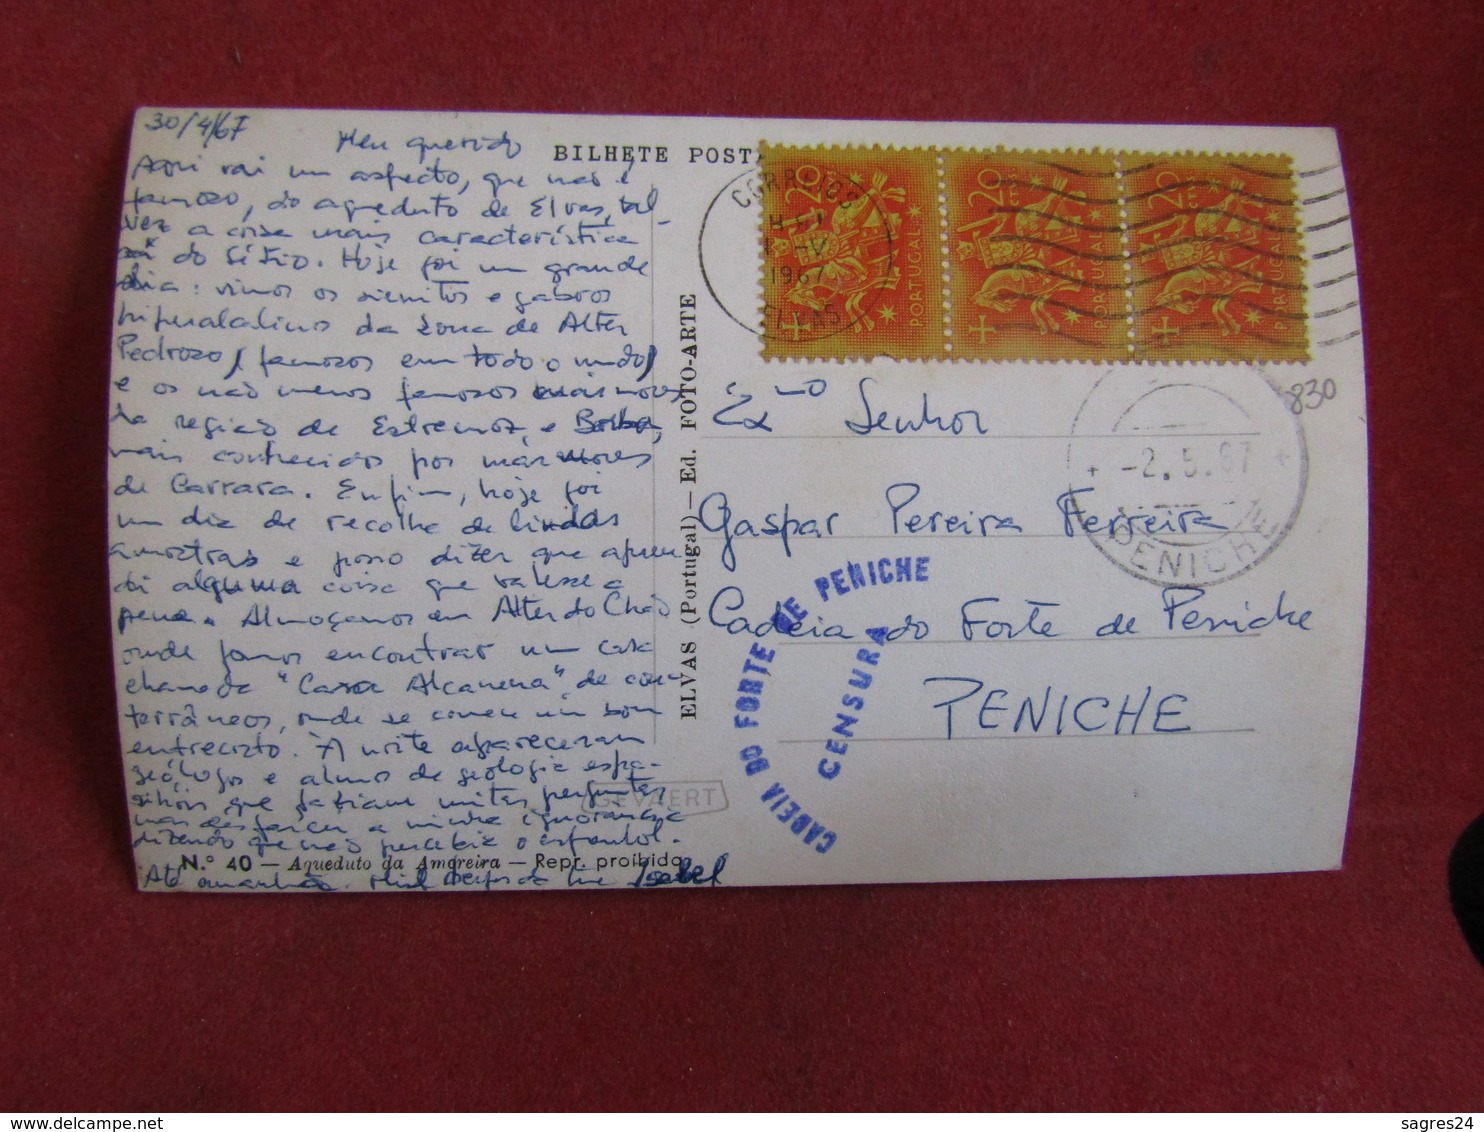 30/4/67
Meu querido
Aqui vai um aspecto, que não é
famoso, do aqueduto de Elvas, tal-
vez a coisa mais característica
do sítio. Hoje foi um grande
dia: vimos os sienitos e gabros
hiperalcalinos da zona de Alter
Pedroso (famosos em todo o mundo)
e os não menos famosos mármores
da região de Estremoz, e Borba,
mais conhecidos por mármores
de Carrara. Enfim, hoje foi
um dia de recolha de lindas
amostras e posso dizer que apren-
di alguma coisa que valesse a
pena. Almoçamos em Alter do Chão
onde fomos encontrar um casa
chamada "Casa Alcanena", de con-
terrâneos, onde se comeu um bom
entrecosto. À noite apareceram
geólogos e alunos de geologia espa-
nhóis que faziam muitas perguntas
mas desfarcei a minha ignorância
dizendo que não percebia o espanhol.
Até amanhã. Mil beijos da tua Isabel
BILHETE POST
ELVAS (Portugal) — Ed. FOTO-ARTE
GEVAERT
N.° 40 — Aqueduto da Amoreira — Repr. proibida
CORREIOS
1 -V
1967
ELVAS
20
PORTUGAL
20
CTVS
PORTUGAL
20
CTVS
PORTUGAL
830
-2.5.67
PENICHE
Exmo Senhor
Gaspar Pereira Ferreira
Cadeia do Forte de Peniche
PENICHE
CADEIA DO FORTE DE PENICHE
CENSURA
sagres24